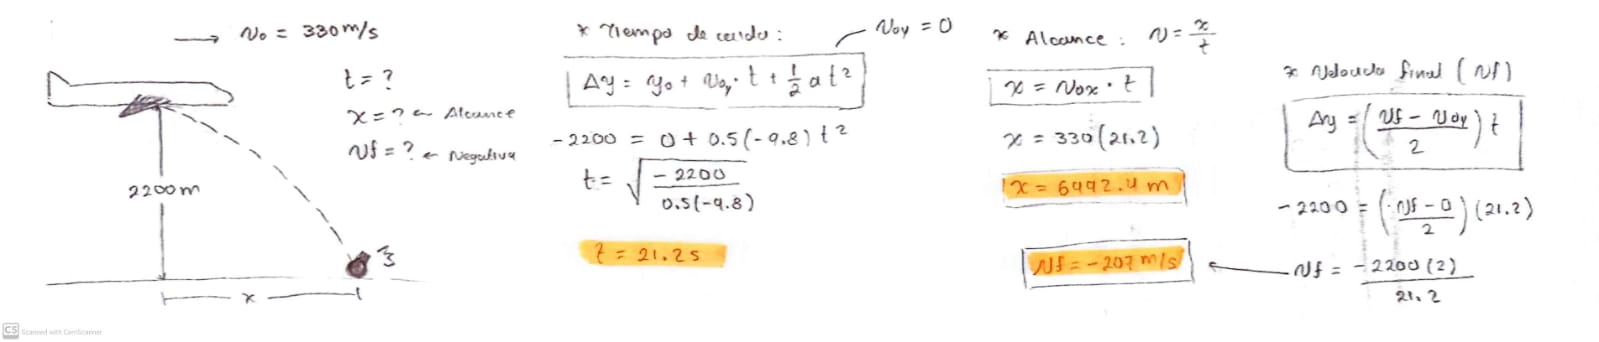 → v₀ = 330 m/s
t = ?
x = ? ← Alcance
vf = ? ← Negativa
2200m
x
* Tiempo de caida :
Voy = 0
Δy = y₀ + v₀y · t + 1/2 a t²
-2200 = 0 + 0.5(-9.8) t²
t = √(-2200 / 0.5(-9.8))
t = 21.2s
* Alcance : v = x/t
x = v₀x · t
x = 330 (21.2)
x = 6992.4 m
vf = -207 m/s
* Velocida final (vf)
Δy = (vf - v₀y / 2) t
-2200 = (vf - 0 / 2) (21.2)
vf = -2200 (2) / 21.2
CS Scanned with CamScanner